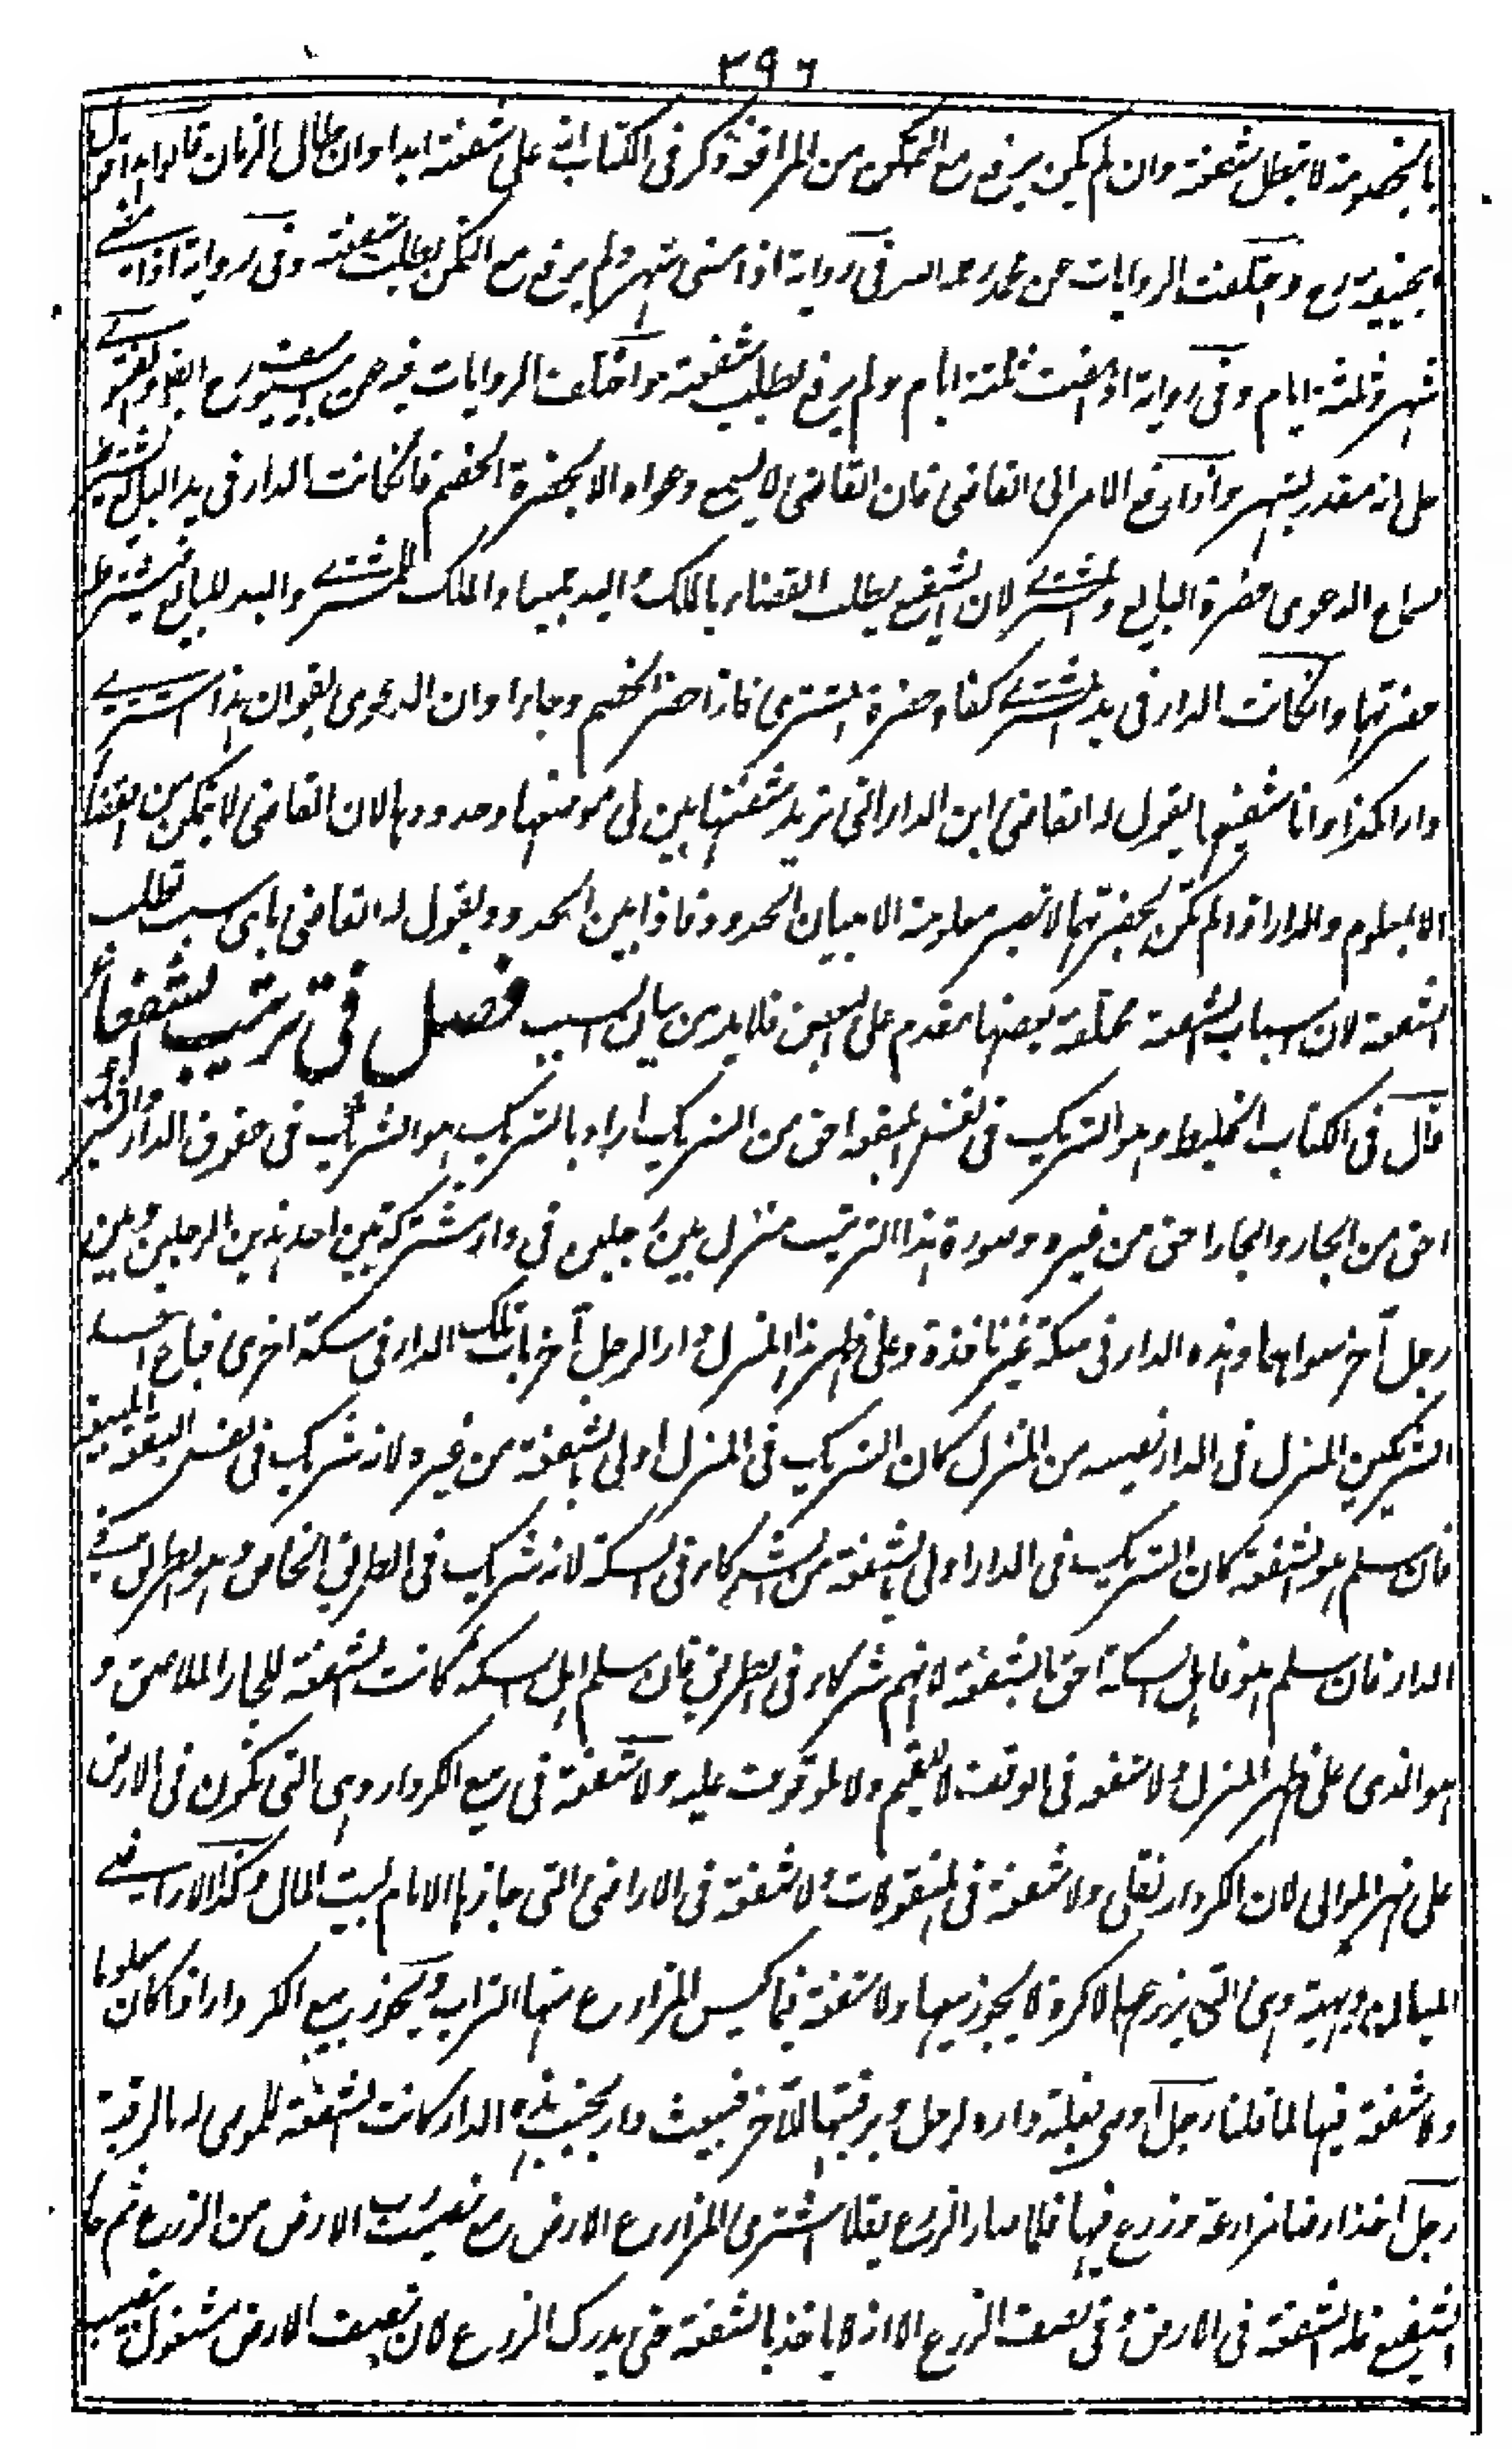 ٣٩٦
بالخصومة لا تبطل شفعته وان لم يكن يرفع مع التمكن من المرافعة ذكر فى الكتاب انه على شفعته ابدا وان طال الزمان قالوا هذا قول
ابيحنيفة رح واختلفت الروايات عن محمد رحمه الله فى رواية اذا مضى شهر ولم يرفع مع التمكن بطلت شفعته وفى رواية اذا مضے
شهر وثلثة ايام وفى رواية اذا مضت ثلثة ايام ولم يرفع بطلت شفعته واختلف الروايات فيه عن ابے يوسف رح ايضا والفتوے
على انه مقدر بشهر واذا رفع الامر الى القاضى فان القاضى لا يسمع دعواه الا بحضرة الخصم فانكانت الدار فى يد البائع يشترط
لسماع الدعوى حضرة البائع والمشترے لان الشفيع يطلب القضاء بالملك واليد جميعا والملك للمشترے واليد للبائع فيشترط
حضرتهما وانكانت الدار فى يد المشترے كفاه حضرة المشترى فاذا حضر الخصم وجاء اوان الدعوى يقول ان هذا اشترے
دارا كذا وانا شفيعها يقول له القاضى اين الدار التى تريد شفعتها بين لى موضعها وحدودها لان القاضى لا يتمكن من القضاء
الا بمعلوم والدار اذا لم تكن بحضرتهما لا تصير معلومة الا ببيان الحدود فاذا بين الحدود يقول له القاضى باى سبب تطلب
الشفعة لان اسباب الشفعة مختلفة بعضها مقدم على البعض فلا بد من بيان السبب فصل فى ترتيب الشفعاء
قال فى الكتاب الخليط وهو الشريك فى نفس البقعة احق من الشريك اراد بالشريك هو الشريك فى حقوق الدار والشريك
احق من الجار والجار احق من غيره وصورة هذا الترتيب منزل بين رجلين فى دار مشتركة بين احد هذين الرجلين وبين
رجل آخر سواهما وهذه الدار فى سكة غير نافذة وعلى ظهر هذا المنزل دار لرجل آخر باب تلك الدار فى سكة اخرى فباع احد
الشريكين المنزل فى الدار نصيبه من المنزل كان الشريك فى المنزل اولى بالشفعة من غيره لانه شريك فى نفس البقعة المبيعة
فان سلم هو الشفعة كان الشريك فى الدار اولى بالشفعة من الشركاء فى السكة لانه شريك فى الطريق الخاص وهو الطريق فے
الدار فان سلم هو فاهل السكة احق بالشفعة لانهم شركاء فى الطريق فان سلم اهل السكة كانت الشفعة للجار الملاصق و
هو الذى على ظهر المنزل ولا شفعة فى الوقف لا للقيم ولا للموقوف عليه ولا شفعة فى بيع الكردار وهى التى تكون فى الارض
على نهر الموالى لان الكردار نقلى ولا شفعة فى المنقولات ولا شفعة فى الاراضى التى حازها الامام لبيت المال وكذا الاراضے
الميان دهية وهى التى يزرعها الاكرة لا يجوز بيعها ولا شفعة فيما كبس المزارع منها التراب ويجوز بيع الكردار اذا كان معلوما
ولا شفعة فيها لما قلنا رجل اوصى بغلة داره لرجل وبرقبتها لآخر فبيعت دار بجنب هذه الدار كانت الشفعة للموصى له بالرقبة
رجل اخذ ارضا مزارعة وزرع فيها فلما صار الزرع بقلا اشترى المزارع الارض مع نصيب رب الارض من الزرع ثم جاء
الشفيع فله الشفعة فى الارض وفى نصف الزرع الا انه لا ياخذ بالشفعة حتى يدرك الزرع لان نصف الارض مشغول بنصيب